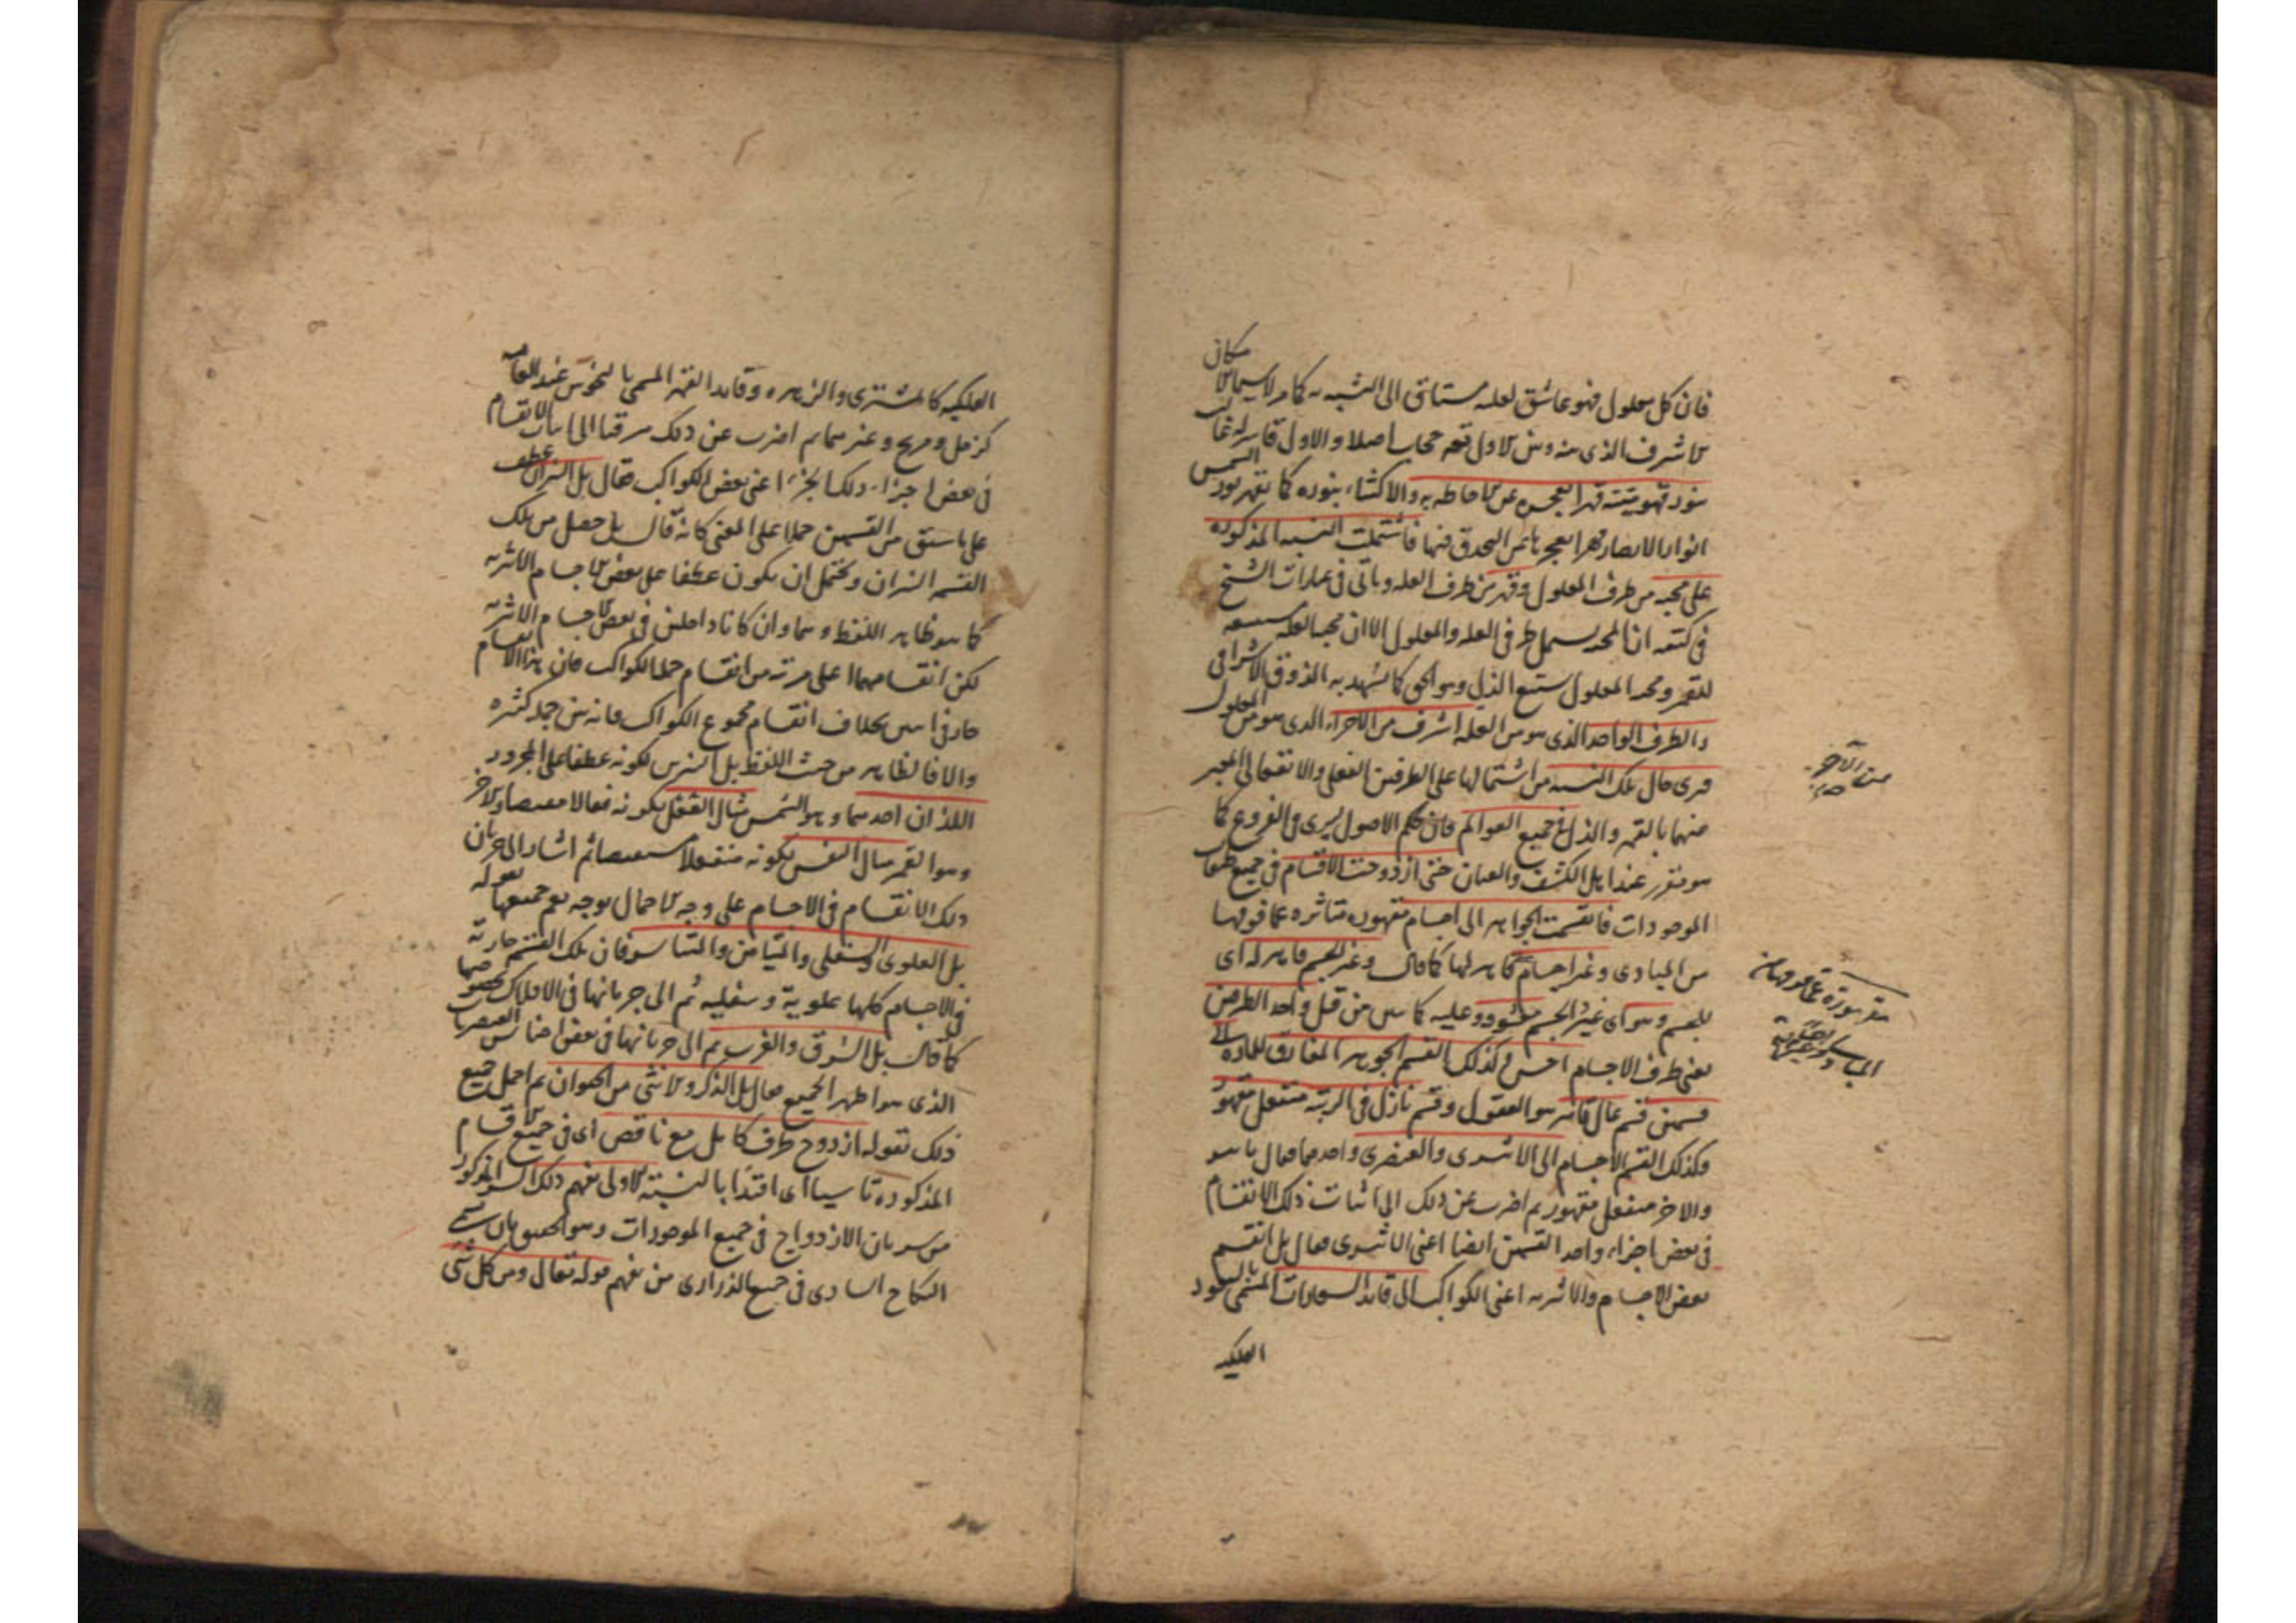 فان كل معلول فهو عاشق لعله مشتاق الى التشبه به كما مر لا سيما
مكان
الاشرف الذى بينه وبين الاول حجاب اصلا والاول قاهر له
بنوره قهرا يعجزه عن الاحاطه به والاكتناه بنوره كما يقهر نور الشمس
انوار الابصار قهرا يعجزها عن التحدق فيها فاشتملت النسبه المذكوره
على محبه من طرف المعلول وقهر من طرف العله وياتى فى عبارات الشيخ
فى كتبه ان المحبه يشمل طرفى العله والمعلول الا ان محبه العله
للقهر ومحبه المعلول يستتبع الذل وهو الحق كما يشهد به الذوق الاشراقى
والطرف الواحد الذى هو من العله اشرف من الاخر الذى هو من المعلول
فسرى حال تلك النسبه من اشتمالها على الطرفين الفعلى والانفعالى المعبر
عنهما بالقهر والذل فى جميع العوالم فان حكم الاصول يسرى فى الفروع كما
هو مقرر عند اهل الكشف والعيان حتى ازدوجت الاقسام فى جميع طبقات
الموجودات فانقسمت الجواهر الى اجسام مقهوره متاثره عما فوقها
من المبادى وغير اجسام قاهر لها كما قال وغير الجسم قاهر له اى
للجسم وهو اى غير الجسم معشوقه وعليه كما من قبل واحد الطرفين
يعنى طرف الاجسام اخس وكذلك انقسم الجوهر المفارق للماده الى
قسمين قسم عال قاهر هو العقول وقسم نازل فى الرتبه منفعل مقهور
وكذلك انقسم الاجسام الى الاثيرى والعنصرى واحدهما فعال
والاخر منفعل مقهور ثم اضرب عن ذلك الى اثبات ذلك الانقسام
فى بعض اجزاء واحد القسمين ايضا اعنى الاثيرى فقال بل انقسم
بعض الاجسام الاثيريه اعنى الكواكب الى قائد السعادات المسمى بالسعود
الفلكيه
من الآخر
الفلكيه كالمشترى والزهره وقائد القهر المسمى بالنحوس عند العامه
كزحل ومريخ وغيرهما ثم اضرب عن ذلك مترقيا الى اثبات الانقسام
فى بعض اجزاء ذلك الجزء اعنى بعض الكواكب فقال بل النيران عطف
على ما سبق من القسمين حملا على المعنى كانه قال بل حصل من تلك
القسمه النيران ويحتمل ان يكون عطفا على بعض الاجسام الاثيريه
كما هو ظاهر اللفظ وهما وان كانا داخلين فى بعض الاجسام الاثيريه
لكن انقسامهما اعلى مرتبه من انقسام جمله الكواكب فان هذا الانقسام
جار فى اثنين بخلاف انقسام مجموع الكواكب فانه بين جمله كثيره
والا فالظاهر من حيث اللفظ بل النيرين لكونه عطفا على المجرور
اللذان احدهما وهو الشمس مثال العقل لكونه فعالا مفيضا والاخر
وهو القمر مثال النفس لكونه منفعلا مستفيضا ثم اشار الى جريان
ذلك الانقسام فى الاجسام على وجه الاجمال بوجه يعم جميعها بقوله
بل العلوى والسفلى والميامن والمياسر فان تلك القسمه جاريه
فى الاجسام كلها علويه وسفليه ثم الى جريانها فى الافلاك بخصوصها
كما قال بل الشرق والغرب ثم الى جريانها فى بعض اجناس العنصريات
الذى هو اظهر الجميع فقال بل الذكر والانثى من الحيوان ثم اجمل جميع
ذلك بقوله ازدوج طرف كامل مع ناقص اى فى جميع الاقسام
المذكوره تاسيا اى اقتداء بالنسبه الاولى يفهم ذلك السر المذكور
من سريان الازدواج فى جميع الموجودات وهو الحقيق بان يسمى
النكاح السارى فى جميع الذرارى من يفهم قوله تعالى ومن كل شئ